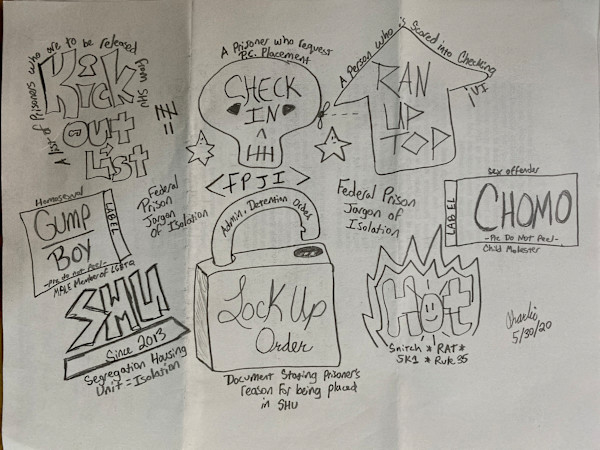 A list of Prisoners who are to be released from SHU
Kick
Out
List
A Prisoner who request
P.C. Placement
CHECK
IN
A Person who is Scared into Checking
RAN
UP
TOP
<FPJI>
Homosexual
GUMP
BOY
LABEL
-Plz do not Peel-
MALE Member of LGBTQ
Federal
Prison
Jargon
Of Isolation
Admin. Detention Order
Lock Up
Order
Document Stating Prisoner's
reason For being placed
in SHU
Federal Prison
Jargon of
Isolation
sex offender
LABEL
CHOMO
-Plz Do Not Peel-
Child Molester
SHU
Since 2013
Segregation Housing
Unit = Isolation
Hot
Snitch * RAT *
5K1 * Rule 35
Charlie
5/30/20